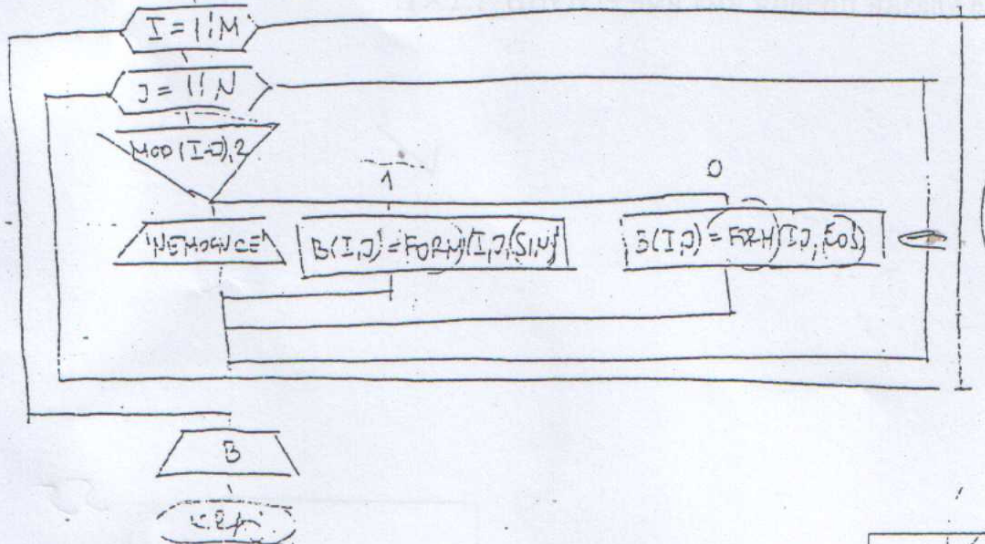 I = 1;1;M
J = 1;1;N
MOD(I-J),2
1
0
'NEMOGUCE'
B(I,J) = FORM(I,J,SIN)
B(I,J) = FORM(I,J,COS)
B